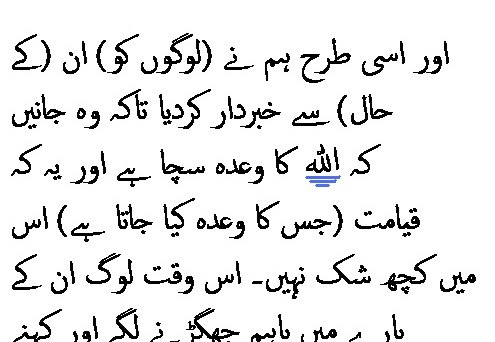 اور اسی طرح ہم نے (لوگوں کو) ان (کے
حال) سے خبردار کردیا تاکہ وہ جانیں
کہ الله کا وعدہ سچا ہے اور یہ کہ
قیامت (جس کا وعدہ کیا جاتا ہے) اس
میں کچھ شک نہیں۔ اس وقت لوگ ان کے
بارے میں باہم جھگڑنے لگے اور کہنے